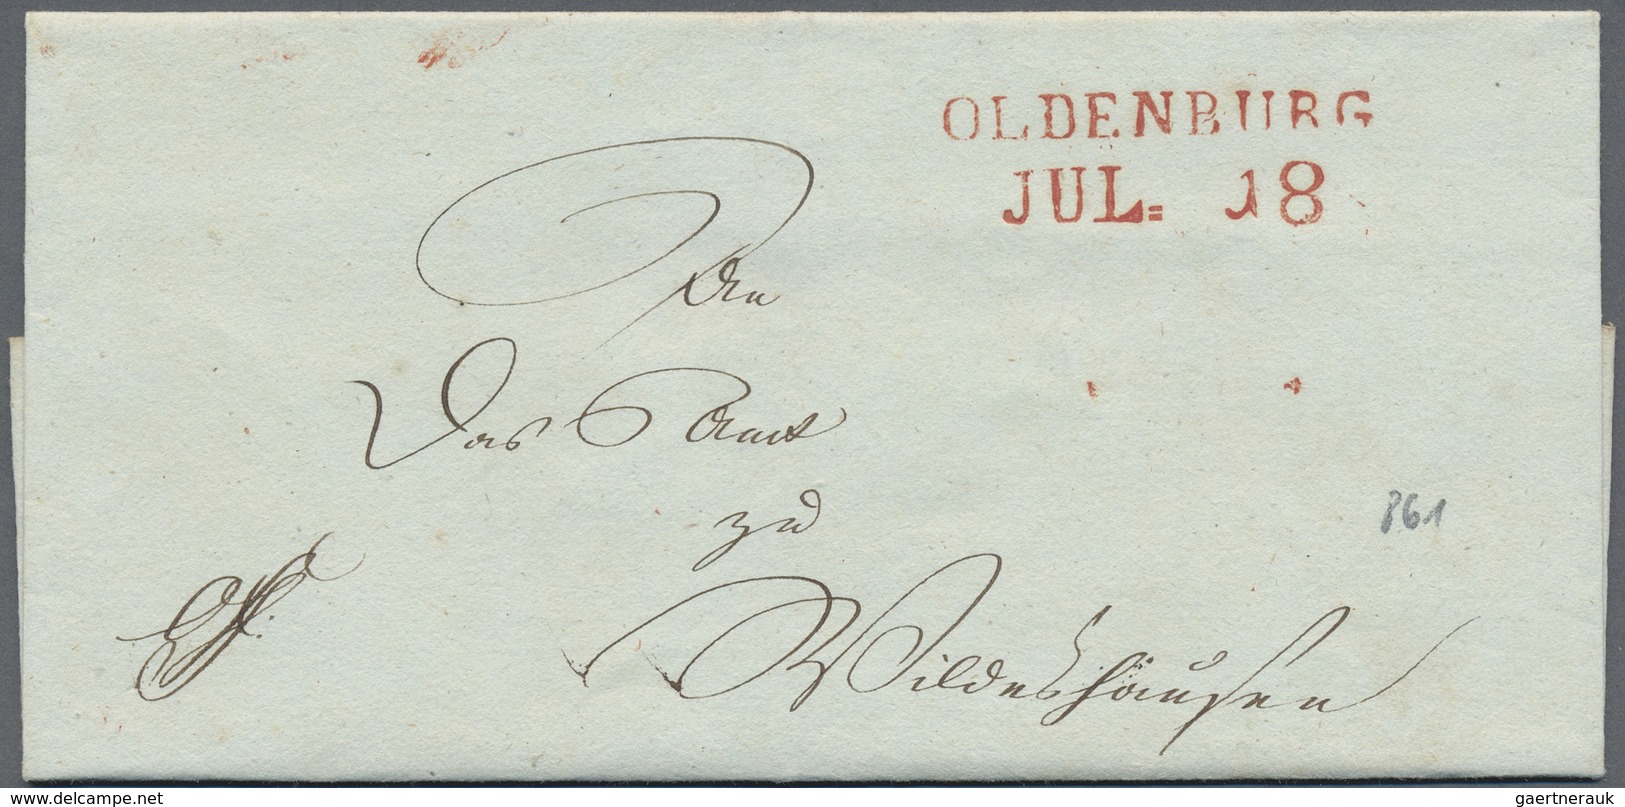 OLDENBURG
JUL= 18
An
Das Amt
zu
Wildeshausen
861
www.delcampe.net
gaertnerauk